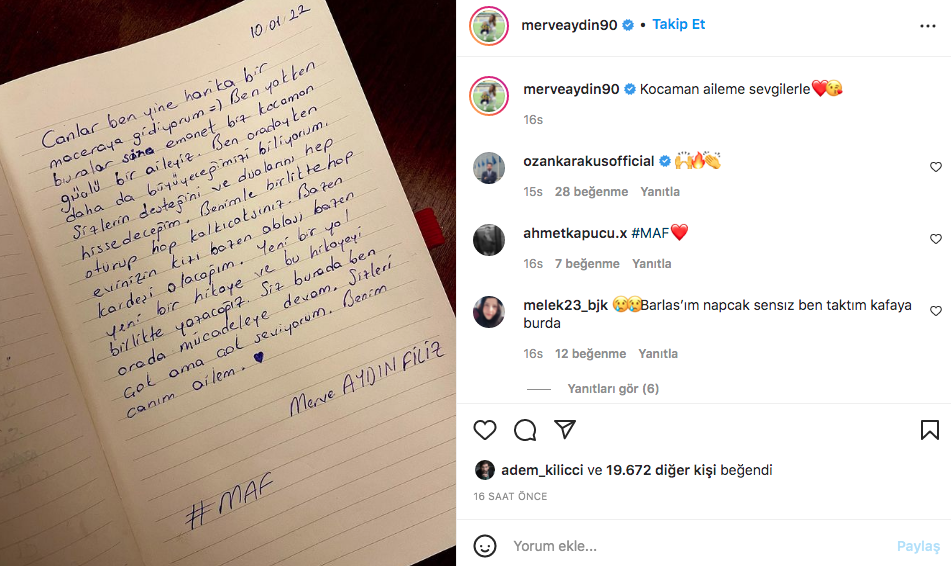 10.01.22
Canlar ben yine harika bir
maceraya gidiyorum =) Ben yokken
buralar size emanet biz kocaman
güçlü bir aileyiz. Ben oradayken
daha da büyüyeceğimizi biliyorum.
Sizlerin desteğini ve dualarını hep
hissedeceğim. Benimle birlikte hop
oturup hop kalkıcaksınız. Bazen
evinizin kızı bazen ablası bazen
kardeşi olacağım. Yeni bir yol
yeni bir hikaye ve bu hikayeyi
birlikte yazacağız. Siz burada ben
orada mücadeleye devam. Sizleri
çok ama çok seviyorum. Benim
canım ailem. ♥
Merve AYDIN FİLİZ
#MAF
merveaydin90 • Takip Et
merveaydin90 Kocaman aileme sevgilerle❤️😘
16s
ozankarakusofficial 🙌🔥👏
15s 28 beğenme Yanıtla
ahmetkapucu.x #MAF❤️
16s 7 beğenme Yanıtla
melek23_bjk 😢😢Barlas’ım napcak sensız ben taktım kafaya
burda
16s 12 beğenme Yanıtla
Yanıtları gör (6)
adem_kilicci ve 19.672 diğer kişi beğendi
16 SAAT ÖNCE
Yorum ekle...
Paylaş